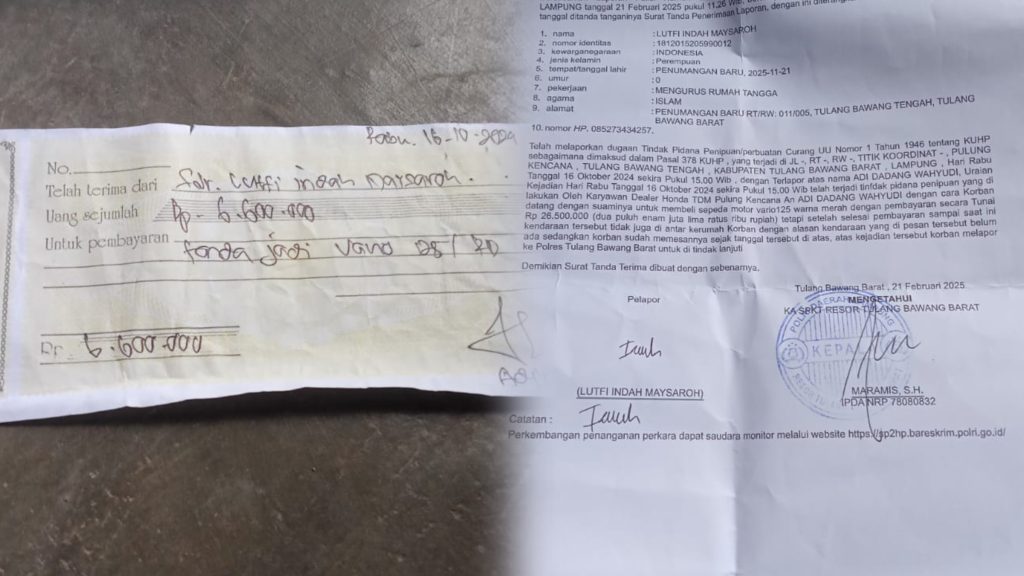 Rabu. 16-10-2024
No.
Telah terima dari Sdr. Lutfi indah Maysaroh.
Uang sejumlah Rp. 6.600.000
Untuk pembayaran tanda jadi Vario
Rp. 6.600.000
LAMPUNG tanggal 21 Februari 2025 pukul 11.26
tanggal ditanda tanganinya Surat Tanda Penerimaan Laporan, dengan ini
1. nama : LUTFI INDAH MAYSAROH
2. nomor identitas : 1812015205990012
3. kewarganegaraan : INDONESIA
4. jenis kelamin : Perempuan
5. tempat/tanggal lahir : PENUMANGAN BARU, 2025-11-21
6. umur : 0
7. pekerjaan : MENGURUS RUMAH TANGGA
8. agama : ISLAM
9. alamat : PENUMANGAN BARU RT/RW: 011/005, TULANG BAWANG TENGAH, TULANG
BAWANG BARAT
10. nomor HP. 085273434257.
Telah melaporkan dugaan Tindak Pidana Penipuan/perbuatan Curang UU Nomor 1 Tahun 1946 tentang KUHP
sebagaimana dimaksud dalam Pasal 378 KUHP , yang terjadi di JL -, RT -, RW -, TITIK KOORDINAT - , PULUNG
KENCANA , TULANG BAWANG TENGAH , KABUPATEN TULANG BAWANG BARAT , LAMPUNG , Hari Rabu
Tanggal 16 Oktober 2024 sekira Pukul 15.00 Wib , dengan Terlapor atas nama ADI DADANG WAHYUDI, Uraian
Kejadian Hari Rabu Tanggal 16 Oktober 2024 sekira Pukul 15.00 Wib telah terjadi tinfdak pidana penipuan yang di
lakukan Oleh Karyawan Dealer Honda TDM Pulung Kencana An ADI DADANG WAHYUDI dengan cara Korban
datang dengan suaminya untuk membeli sepeda motor vario125 warna merah dengan pembayaran secara Tunai
Rp 26.500.000 (dua puluh enam juta lima ratus ribu rupiah) tetapi setelah selesai pembayaran sampai saat ini
kendaraan tersebut tidak juga di antar kerumah Korban dengan alasan kendaraan yang di pesan tersebut belum
ada sedangkan korban sudah memesannya sejak tanggal tersebut di atas, atas kejadian tersebut korban melapor
ke Polres Tulang Bawang Barat untuk di tindak lanjuti
Demikian Surat Tanda Terima dibuat dengan sebenarnya.
Tulang Bawang Barat , 21 Februari 2025
Pelapor
MENGETAHUI
KA SPKT RESOR TULANG BAWANG BARAT
KEPA
(LUTFI INDAH MAYSAROH)
MARAMIS, S.H.
IPDA NRP 78080832
Catatan :
Perkembangan penanganan perkara dapat saudara monitor melalui website https://sp2hp.bareskrim.polri.go.id/